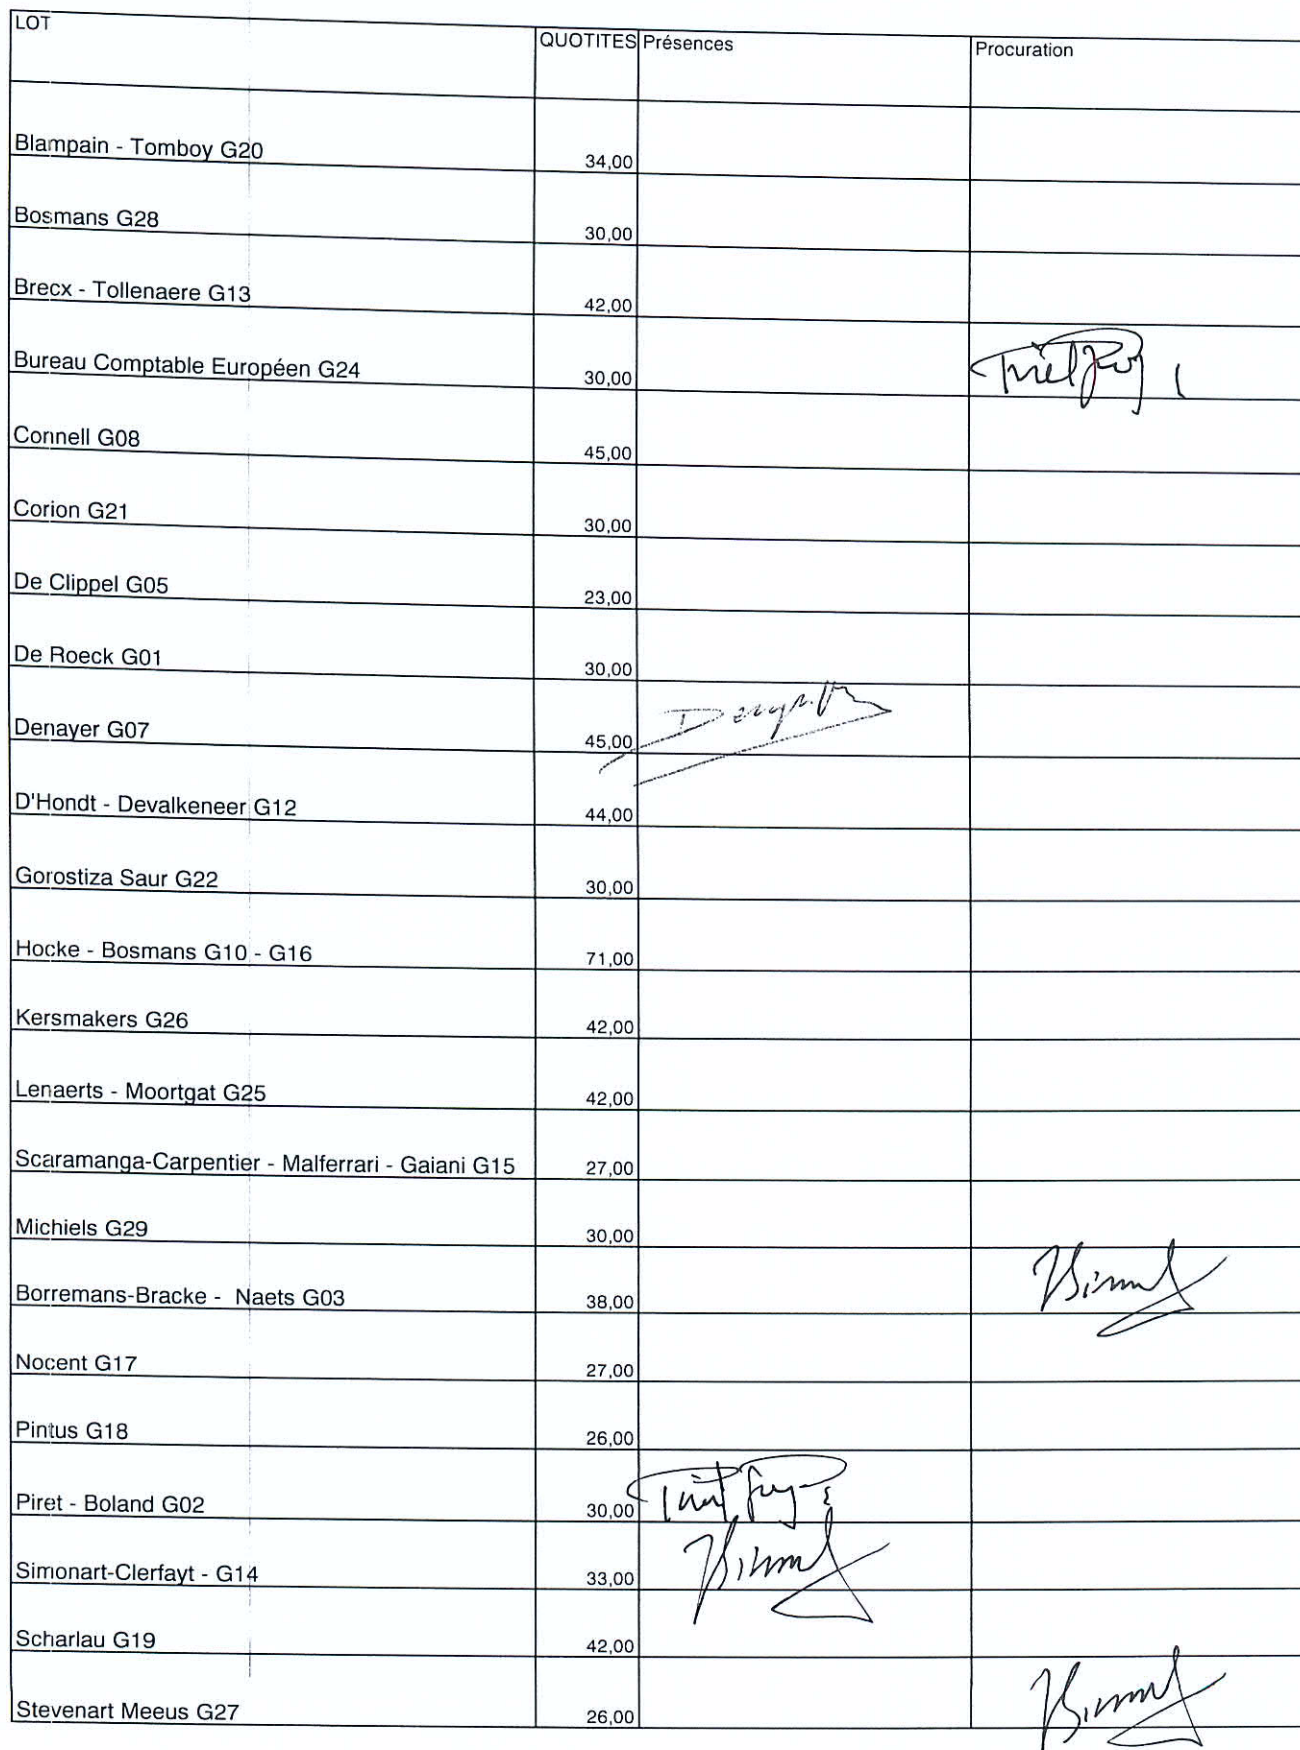 LOT QUOTITES Présences Procuration
Blampain - Tomboy G20 34,00
Bosmans G28 30,00
Brecx - Tollenaere G13 42,00
Bureau Comptable Européen G24 30,00
Connell G08 45,00
Corion G21 30,00
De Clippel G05 23,00
De Roeck G01 30,00
Denayer G07 45,00
D'Hondt - Devalkeneer G12 44,00
Gorostiza Saur G22 30,00
Hocke - Bosmans G10 - G16 71,00
Kersmakers G26 42,00
Lenaerts - Moortgat G25 42,00
Scaramanga-Carpentier - Malferrari - Gaiani G15 27,00
Michiels G29 30,00
Borremans-Bracke - Naets G03 38,00
Nocent G17 27,00
Pintus G18 26,00
Piret - Boland G02 30,00
Simonart-Clerfayt - G14 33,00
Scharlau G19 42,00
Stevenart Meeus G27 26,00